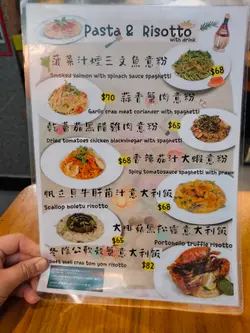 Pasta & Risotto
with drink
菠菜汁煙三文魚意粉
$68
Smoked salmon with spinach sauce spaghetti
$70 蒜香蟹肉意粉
Garlic crab meat coriander with spaghetti
乾蕃茄黑醋雞肉意粉 $65
Dried tomatoes chicken blackvinegar with spaghetti
$68 香辣茄汁大蝦意粉
Spicy tomatosauce spaghetti with prawn
帆立貝牛肝菌汁意大利飯
Scallop boletu risotto $68
大啡菇黑松露意大利飯
$65 Portomelo truffle risotto
冬蔭公軟殼蟹意大利飯
Soft shell crab tom yom risotto $82